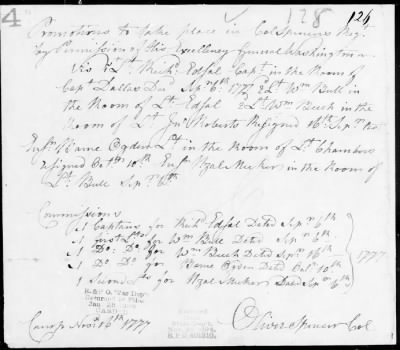 4 128 126
Promotions to take place in Col Spencers Regt
by Permission of His Excellency General Washington
Viz 1st Lt. Richd. Edsal Capt. in the Room of
Capt Dallas Decd Sepr. 6th. 1777 2d Lt Wm Bull in
the Room of Lt. Edsal 2 Lt. Wm Beech in the
Room of Lt. Jno. Roberts Resigned 16th. Sepr.
Ensn. Barne Ogden Lt. in the Room of Lt Chambers
resigned Octr. 10th Ensn Uzal Meeker in the Room of
Lt. Bull Sepr. 6th.
Commissions
1 Captains for Richd. Edsal Dated Sepr. 6th
1 first Lts. for Wm Bull Dated Sepr. 6th
1 Do. Do for Wm Beech Dated Sepr. 16th
1 Do Do for Barne Ogden Dated Oct. 10th
1 Second Lts for Uzal Meeker Dated Sepr 6th
1777
Camp Novr 16th 1777
Oliver Spencer Col